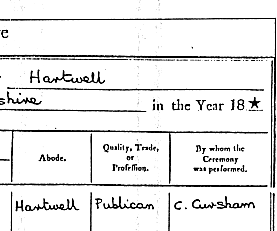 re
Hartwell
shire in the Year 18★
Abode. Quality, Trade, or Profession. By whom the Ceremony was performed.
Hartwell Publican C. Cursham